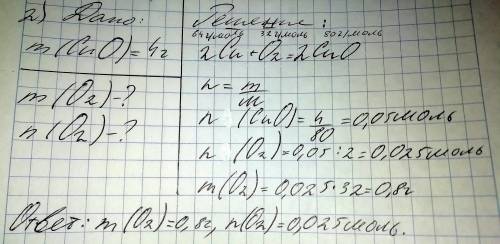 2) Дано:
m(CuO)=4г
m(O₂)-?
n(O₂)-?
Решение:
64г/моль 32г/моль 80г/моль
2Cu+O₂=2CuO
n=m/M
n(CuO)=4/80=0,05моль
n(O₂)=0,05:2=0,025моль
m(O₂)=0,025*32=0,8г
Ответ: m(O₂)=0,8г, n(O₂)=0,025моль.